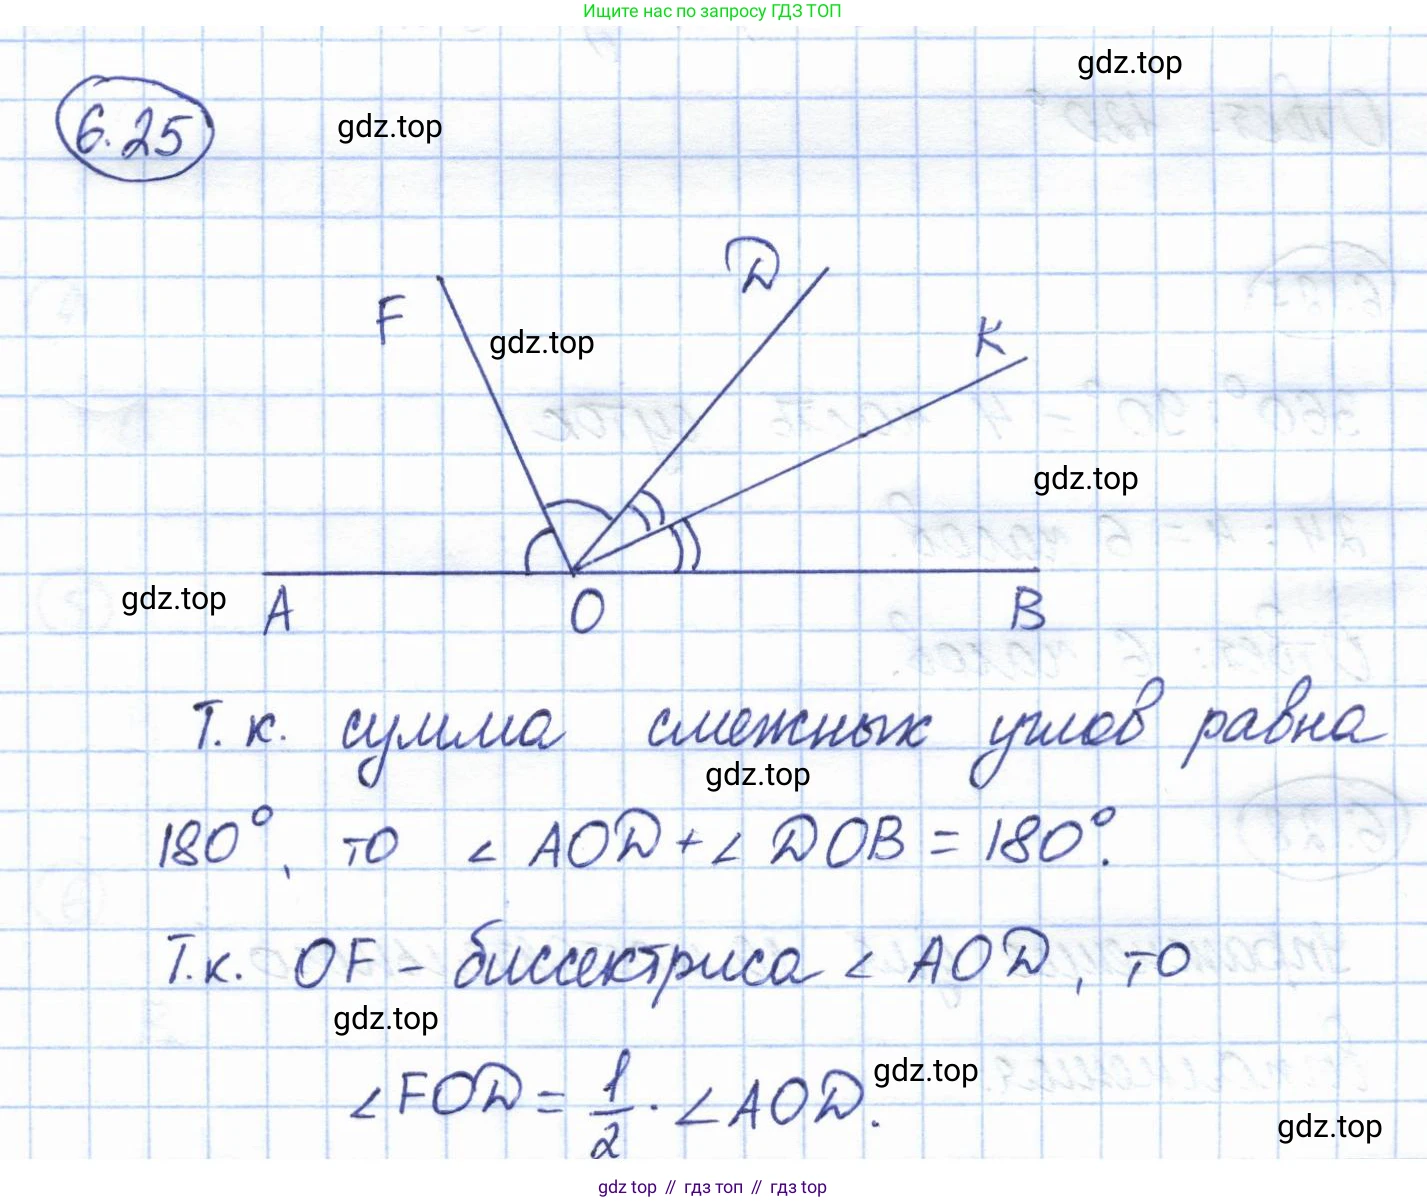 Ищите нас по запросу ГДЗ ТОП
gdz.top
6.25
gdz.top
F
D
K
gdz.top
gdz.top
gdz.top
A
O
B
Т.к. сумма смежных углов равна
gdz.top
180°, то ∠ AOD + ∠ DOB = 180°.
Т.к. OF - биссектриса ∠ AOD, то
gdz.top
∠FOD = 1/2 · ∠AOD.
gdz.top
gdz.top
gdz.top // гдз топ // гдз top